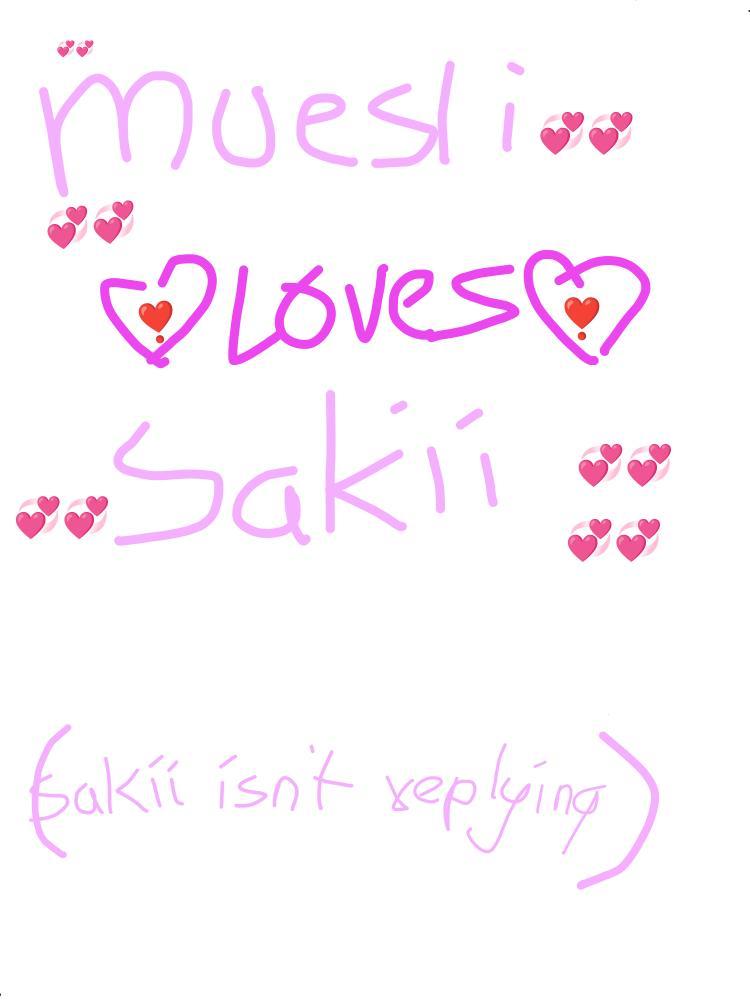 muesli
loves
Sakii
(sakii isn't replying)